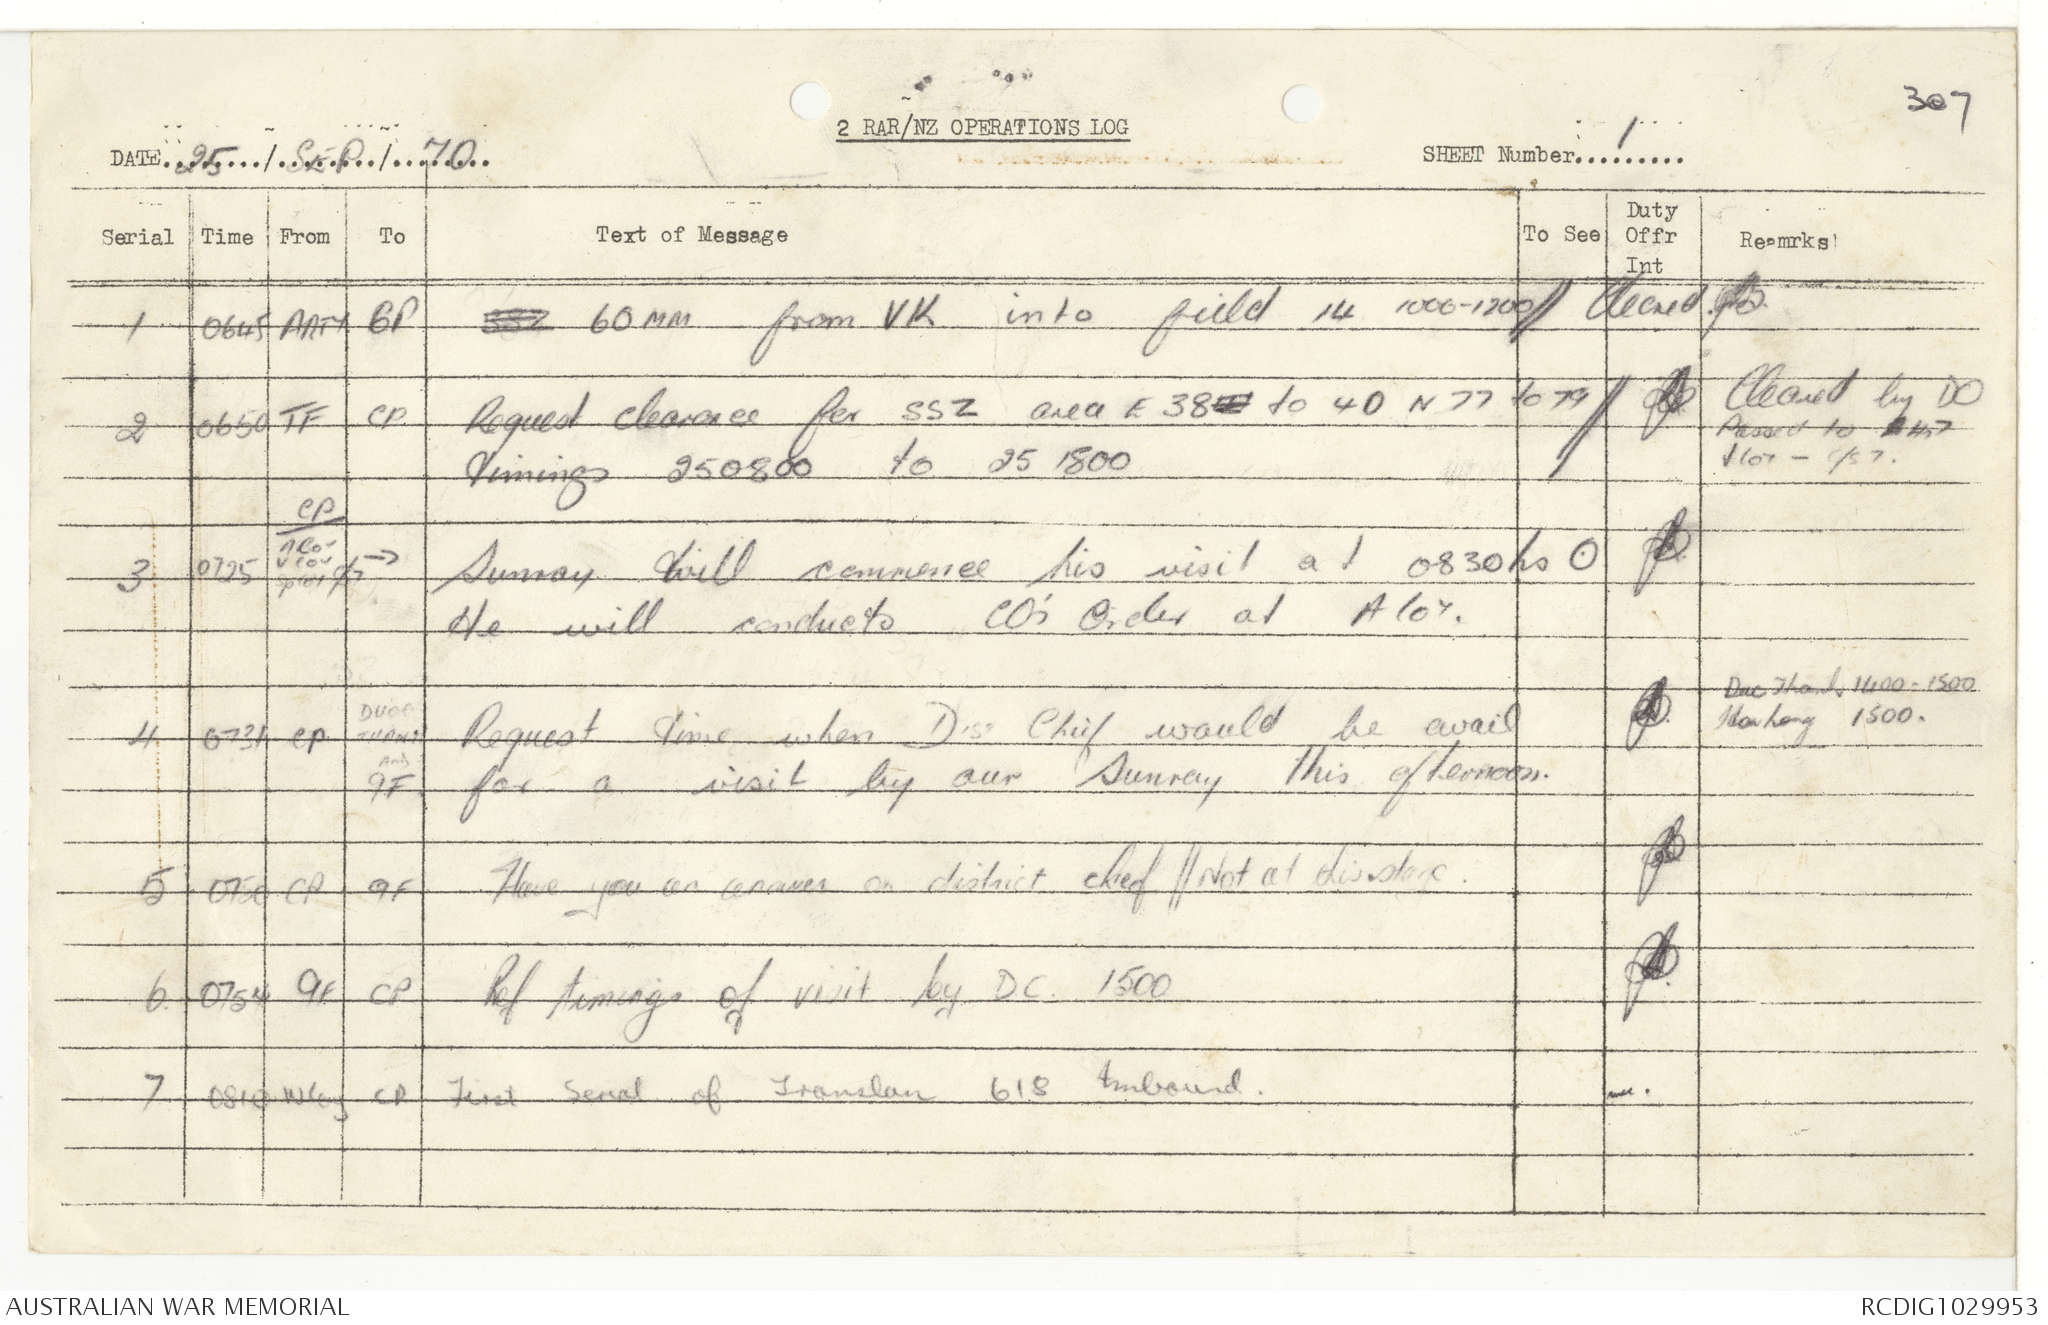 307
2 RAR/NZ OPERATIONS LOG
DATE 25 / SEP / 70
SHEET Number 1
Serial Time From To Text of Message To See Duty Offr Int Reamrks
1 0645 ARTY CP SSZ 60MM from VK into field 14 1000-1200 // Cleared.
2 0650 TF CP Request clearance for SSZ area E 38 to 40 N 77 to 79 // Cleared by DO
Timings 250800 to 251800 Passed to
CP
3 0725 Sunray will commence his visit at 0830hs O
He will conducts CO's Order at A Coy.
4 0731 CP DUOC THANH Request time when Dis Chief would be avail Duc Thanh 1400-1500
and 9F for a visit by our Sunray this afternoon. Hoa Long 1500.
5 0750 CP 9F Have you an answer on district chief // Not at this stage.
6 0754 9F CP Ref timings of visit by DC. 1500
7 0810 CP First Serial of Translan 618 Inbound.
AUSTRALIAN WAR MEMORIAL
RCDIG1029953